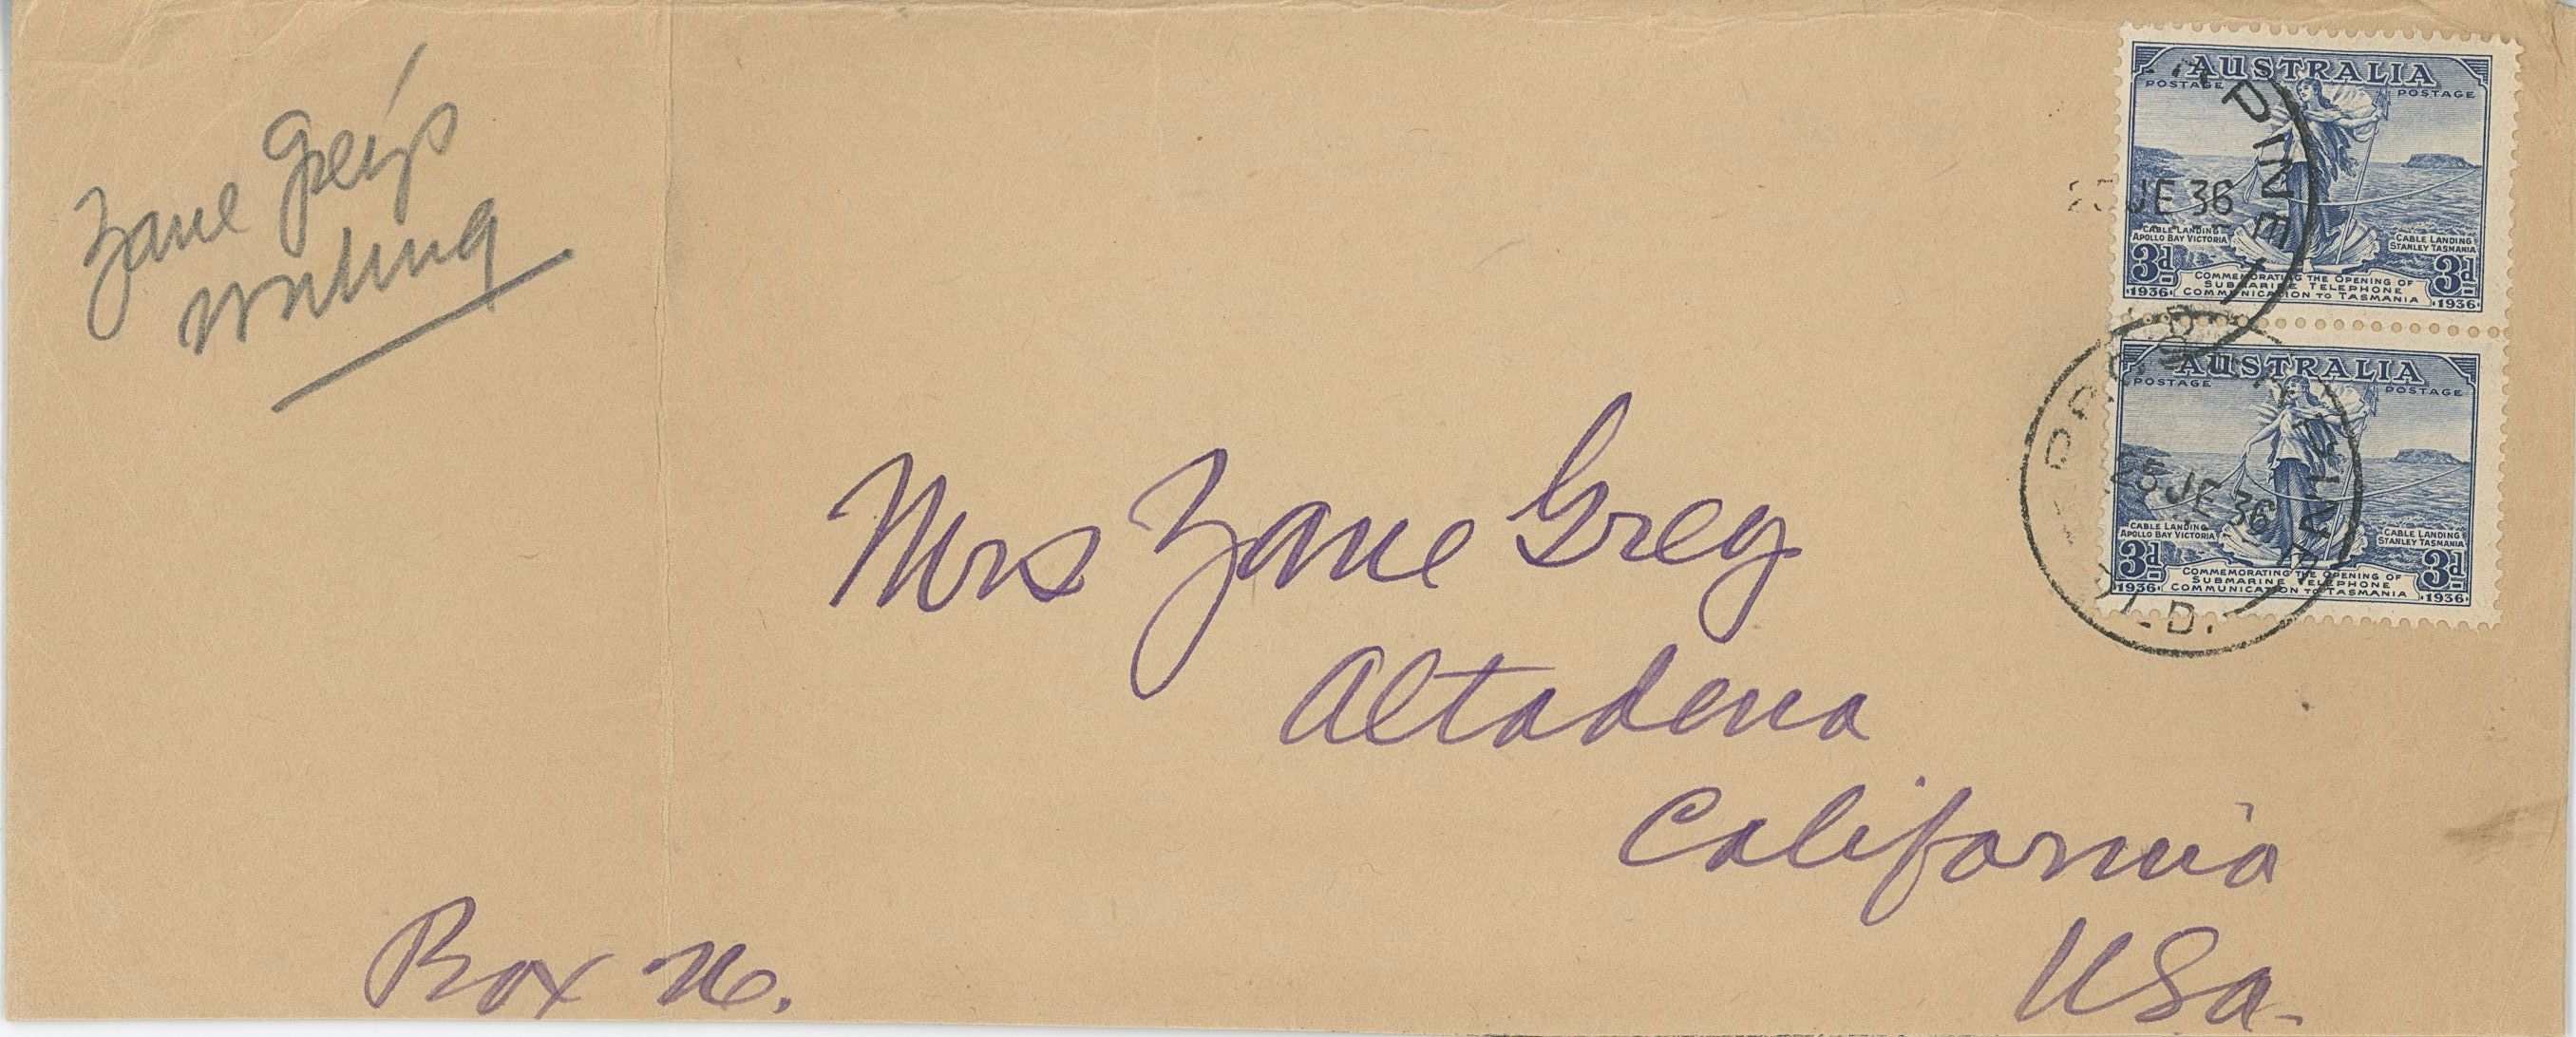 Zane Grey's
writing
AUSTRALIA
POSTAGE POSTAGE
25 JE 36
CABLE LANDING
APOLLO BAY VICTORIA
CABLE LANDING
STANLEY TASMANIA
3d 3d
COMMEMORATING THE OPENING OF
SUBMARINE TELEPHONE
COMMUNICATION TO TASMANIA
1936 1936
AUSTRALIA
POSTAGE POSTAGE
25 JE 36
CABLE LANDING
APOLLO BAY VICTORIA
CABLE LANDING
STANLEY TASMANIA
3d 3d
COMMEMORATING THE OPENING OF
SUBMARINE TELEPHONE
COMMUNICATION TO TASMANIA
1936 1936
Mrs Zane Grey
Altadena
California
USA.
Box